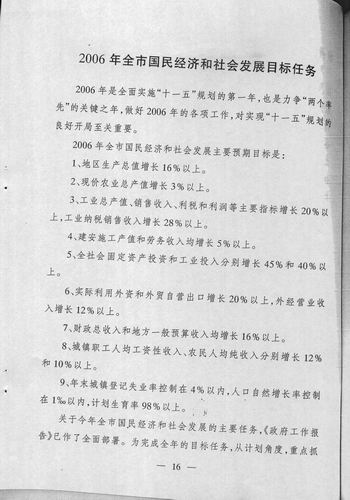 2006 年全市国民经济和社会发展目标任务
2006 年是全面实施“十一五”规划的第一年,也是力争“两个率
先”的关键之年,做好 2006 年的各项工作,对实现“十一五”规划的
良好开局至关重要。
2006 年全市国民经济和社会发展主要预期目标是:
1、地区生产总值增长 16% 以上。
2、现价农业总产值增长 3% 以上。
3、工业总产值、销售收入、利税和利润等主要指标增长 20% 以
上,工业纳税销售收入增长 28% 以上。
4、建安施工产值和劳务收入均增长 5% 以上。
5、全社会固定资产投资和工业投入分别增长 45% 和 40% 以
上。
6、实际利用外资和外贸自营出口增长 20% 以上,外经营业收
入增长 12% 以上。
7、财政总收入和地方一般预算收入均增长 16% 以上。
8、城镇职工人均工资性收入、农民人均纯收入分别增长 12%
和 10% 以上。
9、年末城镇登记失业率控制在 4% 以内,人口自然增长率控制
在 1‰以内,计划生育率 98% 以上。
关于今年全市国民经济和社会发展的主要任务,《政府工作报
告》已作了全面部署。为完成全年的目标任务,从计划角度,重点抓
— 16 —